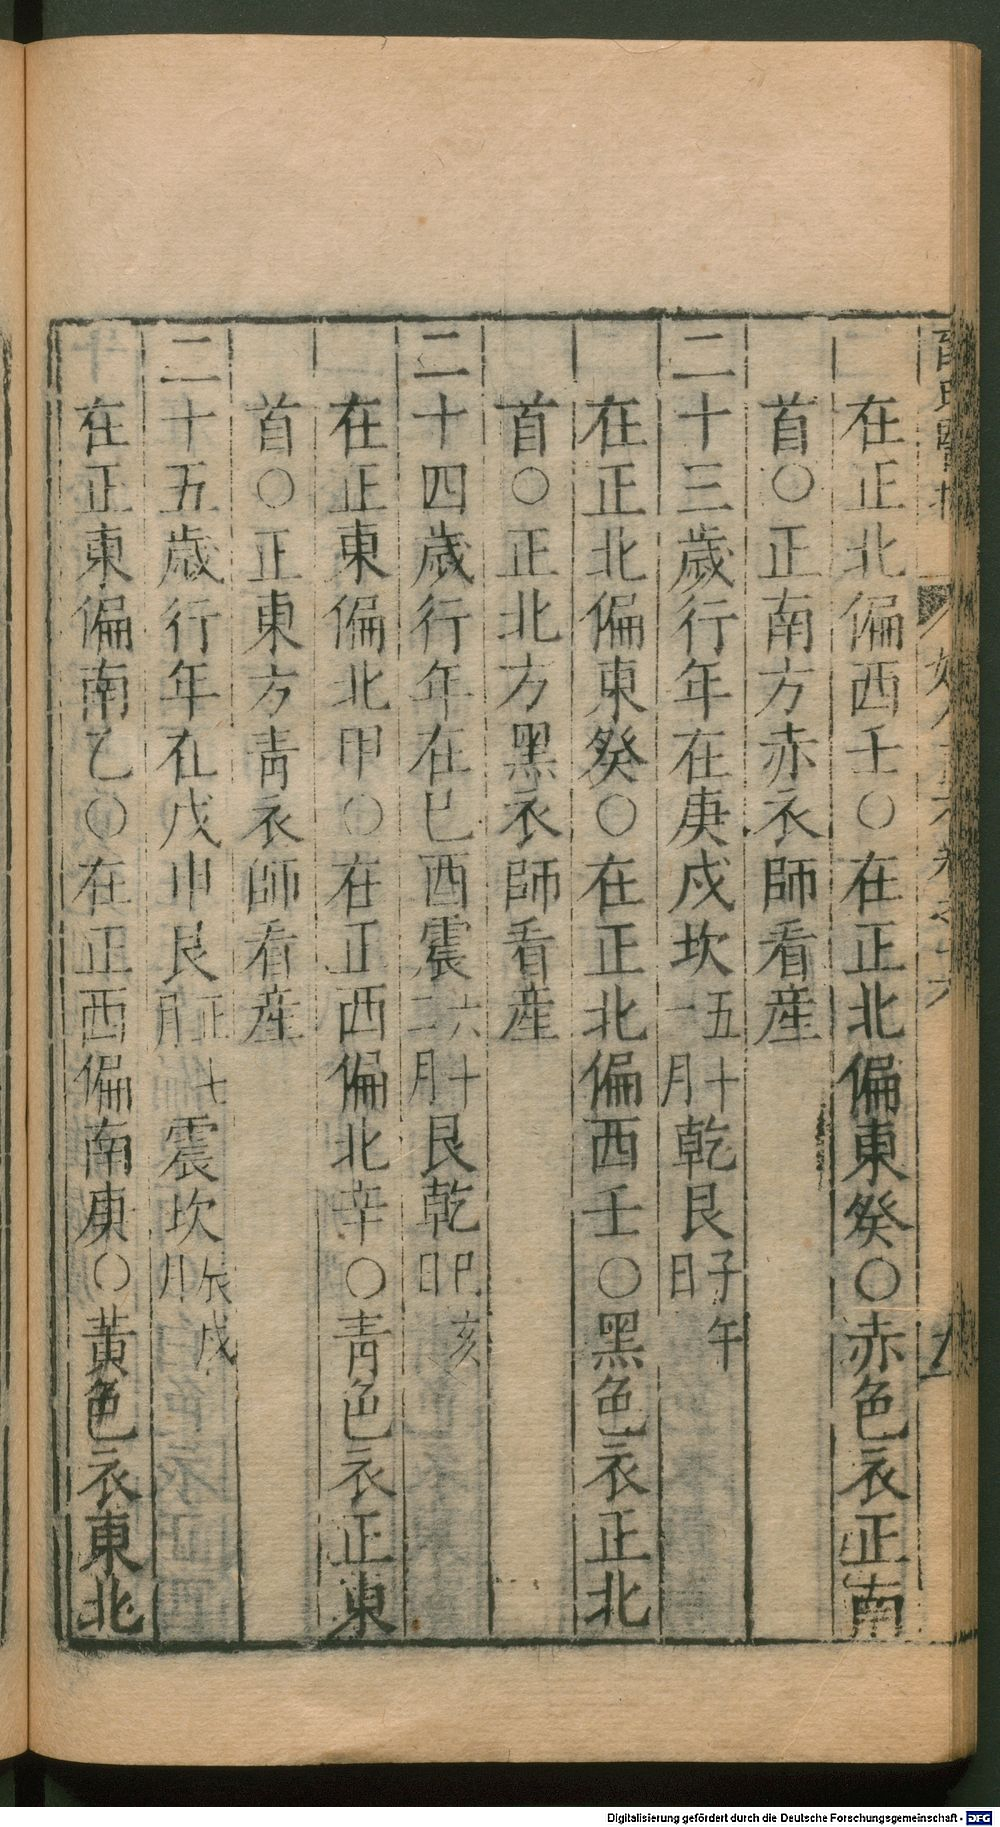 在正北偏西壬〇在正北偏東癸〇赤色衣正南
首〇正南方赤衣師看産
二十三歲行年在庚戌坎五十一月乾艮子午日
在正北偏東癸〇在正北偏西壬〇黑色衣正北
首〇正北方黑衣師看産
二十四歲行年在巳酉震六十二月艮乾巳亥日
在正東偏北甲〇在正西偏北辛〇青色衣正東
首〇正東方青衣師看産
二十五歲行年在戊申艮正七月震坎辰戌月
在正東偏南乙〇在正西偏南庚〇黃色衣東北
Digitalisierung gefördert durch die Deutsche Forschungsgemeinschaft - DFG